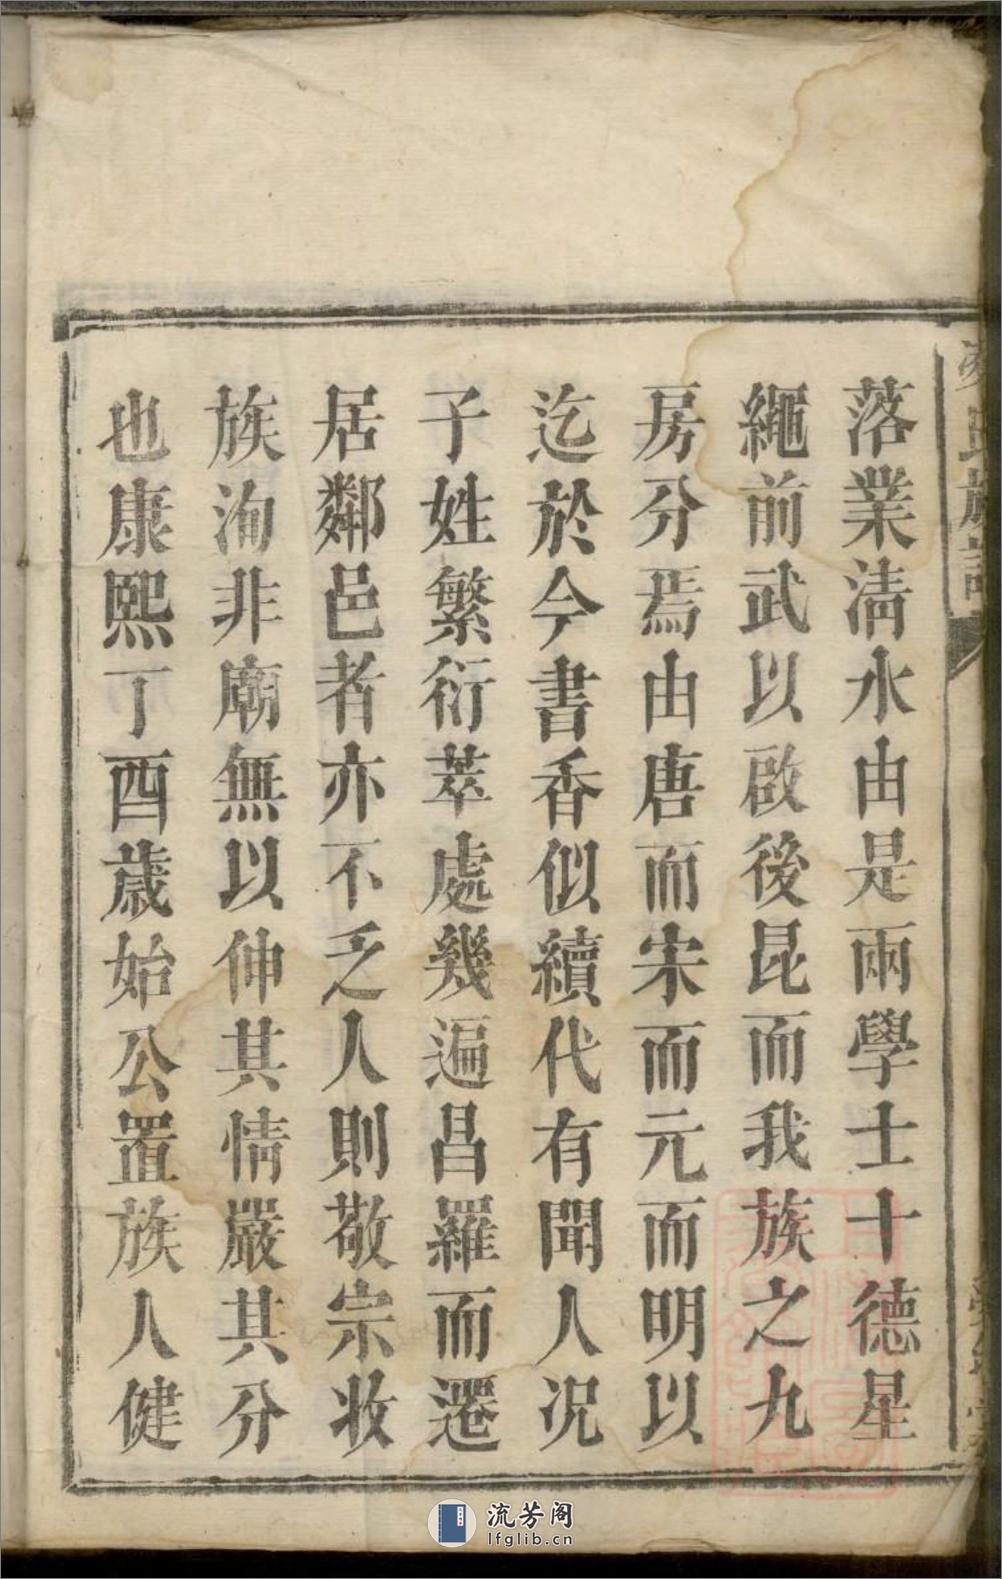 落業淸水由是兩學士十德星
繩前武以啟後昆而我族之九
房分焉由唐而宋而元而明以
迄於今書香似續代有聞人况
子姓繁衍萃處幾遍昌羅而遷
居鄰邑者亦不乏人則敬宗收
族洵非廟無以伸其情嚴其分
也康熙丁酉歲始公置族人健
流芳阁
lfglib.cn